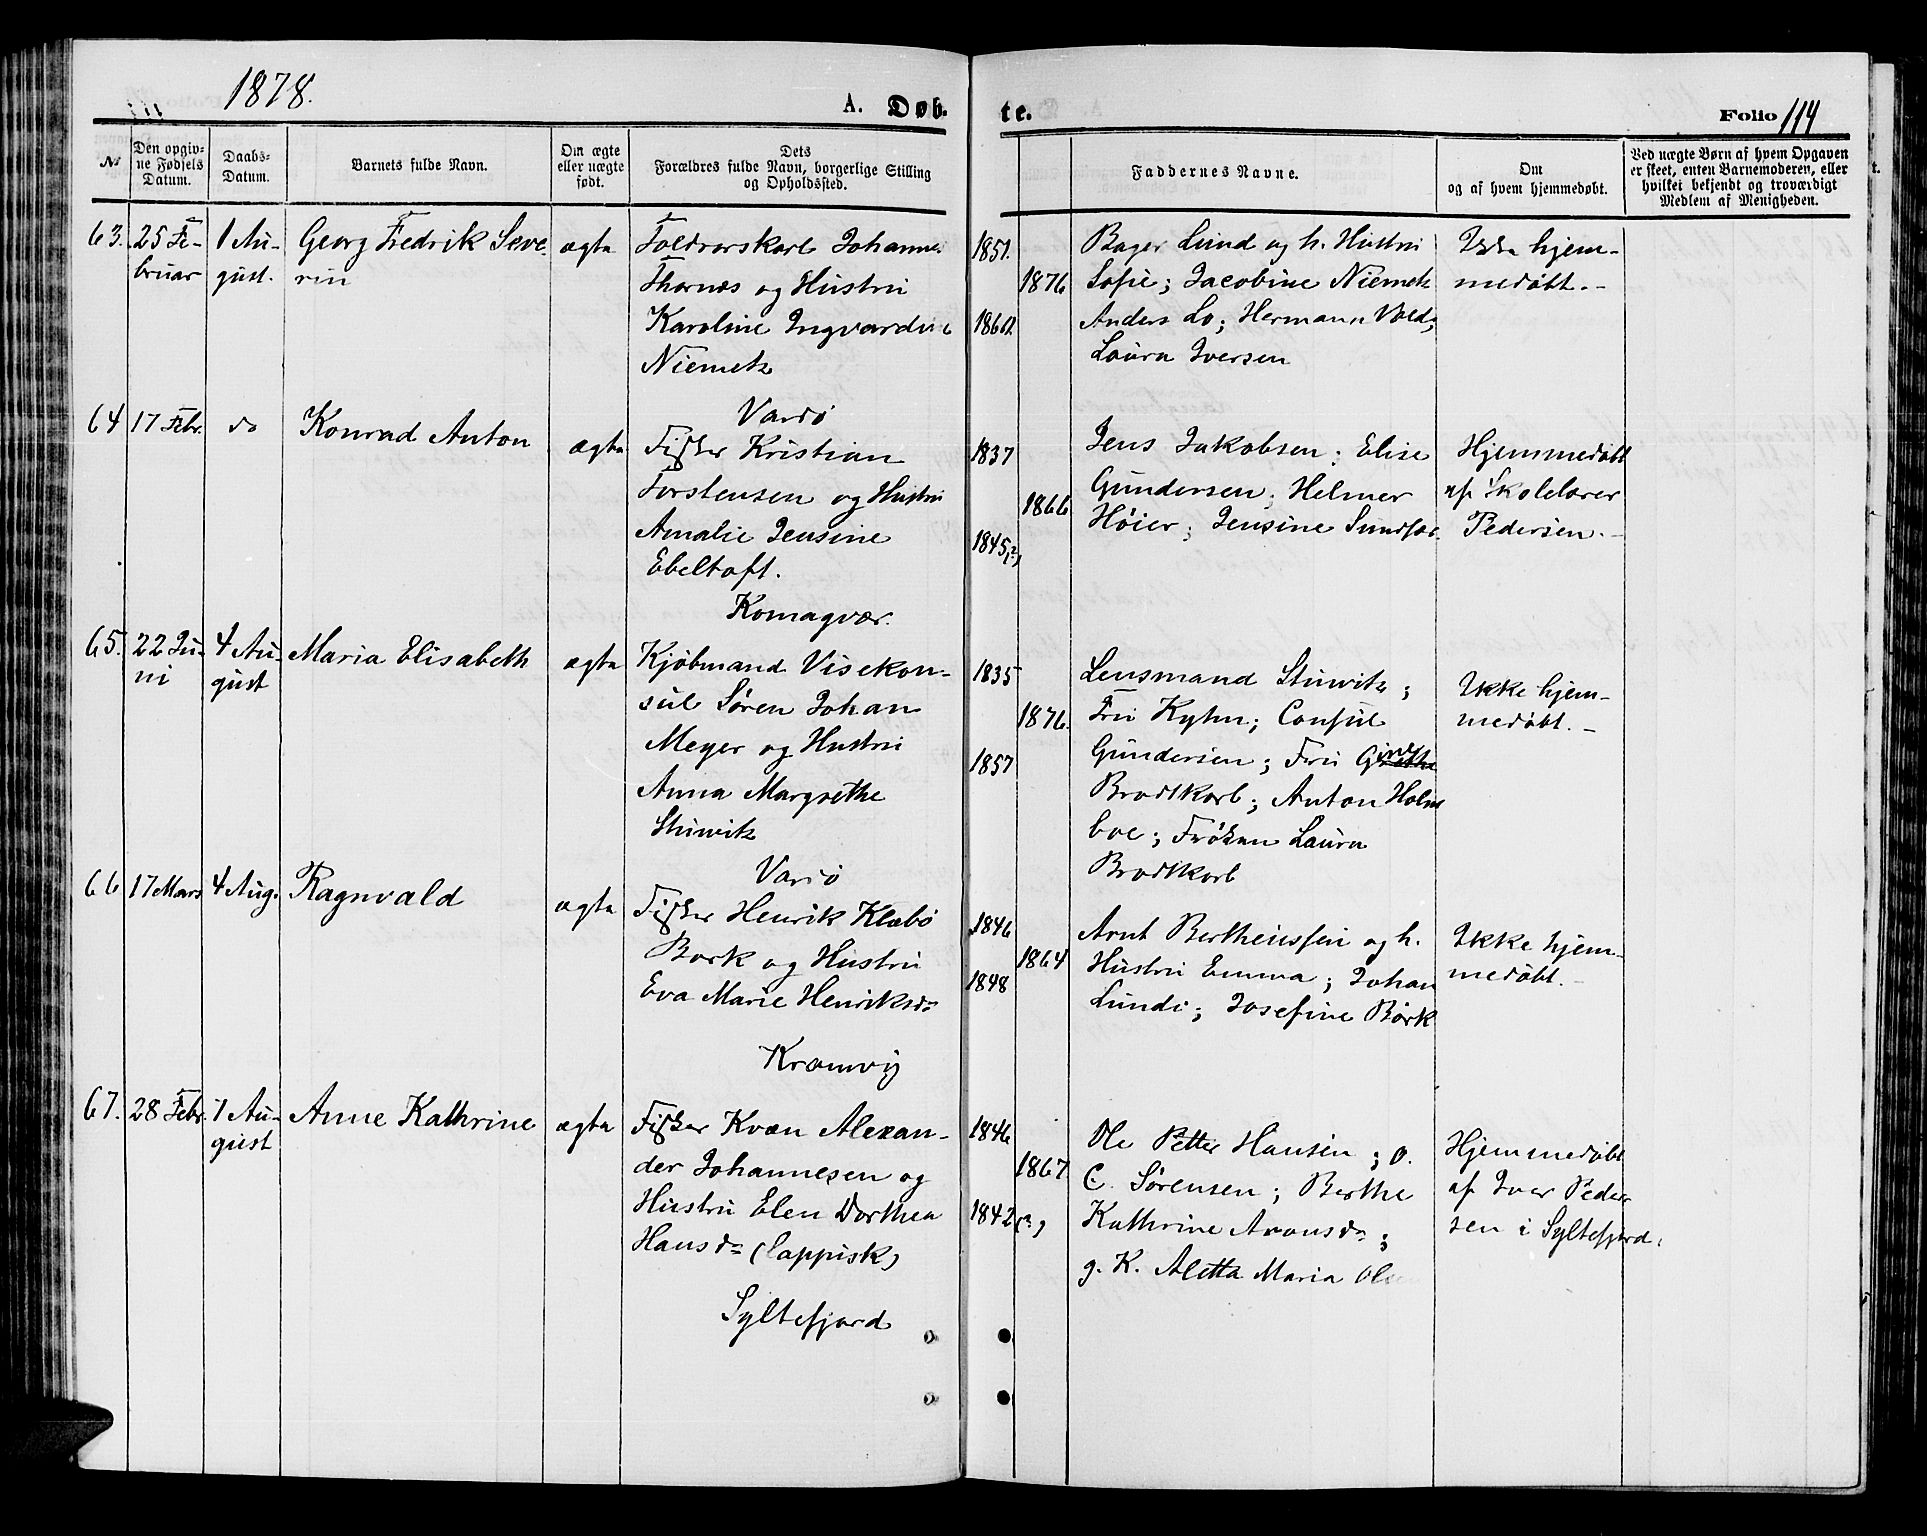 1878.
A. Døb-
te.
Folio 114
№
Den opgiv-
ne Fødsels
Datum.
Daabs-
Datum.
Barnets fulde Navn.
Om ægte
eller uægte
født.
Dets
Forældres fulde Navn, borgerlige Stilling
og Opholdssted.
Faddernes Navne.
Om
og af hvem hjemmedøbt.
Ved uægte Børn af hvem Opgaven
er skeet, enten Barnemoderen, eller
hvilket bekjendt og troværdigt
Medlem af Menigheden.
63. 25 Fe-
bruar
1 Au-
gust.
Georg Fredrik Seve-
rin
ægte
Toldrorskarl Johannes
Thornæs og Hustru
Karoline Ingvardine
Niemetz
Vardø
1851.
1876
Bager Lund og h. Hustru
Sofie; Jacobine Niemetz
Anders Lo; Hermann Vold;
Laura Iversen
Ikke hjem-
medøbt. -
64 17 Febr. do Konrad Anton
ægte
Fisker Kristian
Torstensen og Hustru
Amalie Jensine
Ebeltoft.
Komagvær.
1837
1866
1845(?)
Jens Jakobsen; Elise
Gundersen; Helmer
Høier; Jensine Sundfær
Hjemmedøbt
af Skolelærer
Pedersen. -
65. 22 Ju-
ni
4 Au-
gust
Maria Elisabeth
ægte
Kjøbmand Visekon-
sul Søren Johan
Meyer og Hustru
Anna Margrethe
Stuwitz
Vardø
1835
1876.
1857
Lensmand Stuwitz;
Fru Kyhn; Consul
Gundersen; Fru
Brodtkorb; Anton Holm
boe; Frøken Laura
Brodtkorb
Ikke hjem-
medøbt. -
66 17 Mars 4 Aug. Ragnvald
ægte
Fisker Henrik Klæbø
Bork og Hustru
Eva Marie Henriksdr
Kramvig
1846
1864
1848
Arnt Bertheussen og h.
Hustru Emma; Johan
Lundi; Josefine Børk
Ikke hjem-
medøbt. -
67. 28 Febr. 1 Au-
gust
Anne Kathrine
ægte
Fisker Kvæn Alexan-
der Johannesen og
Hustru Elen Dorthea
Hansdr (lappisk)
Syltefjord
1846
1867
1842(?)
Ole Petter Hansen; O.
C. Sørensen; Berthe
Kathrine Aronsdr;
g. K. Aletta Maria
Hjemmedøbt
af Iver Peder-
sen i Syltefjord.